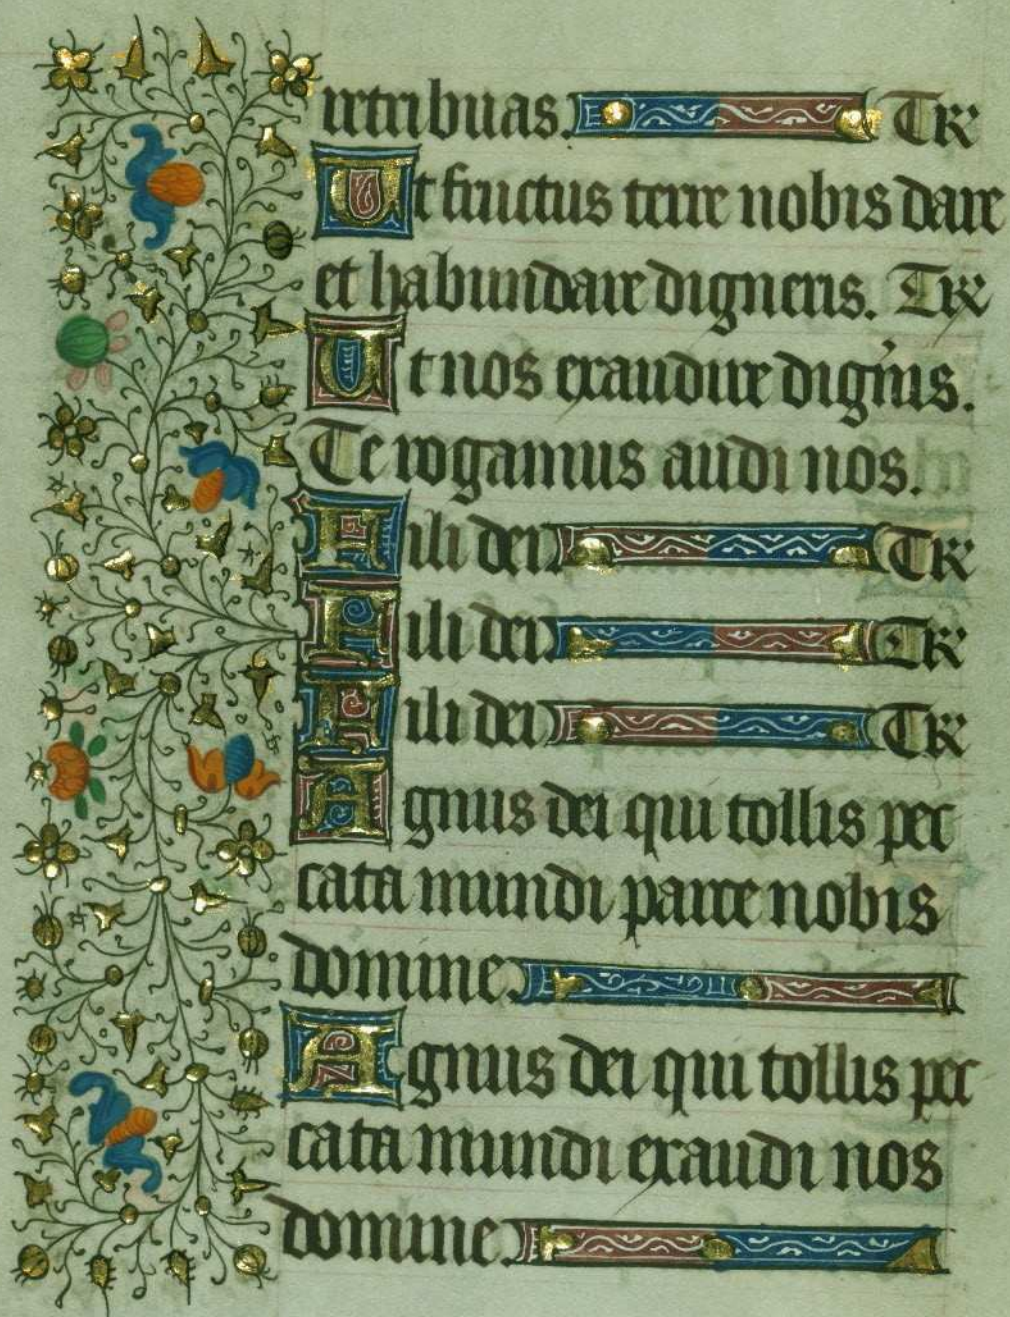 retribuas. Te R
Ut fructus terre nobis dare
et habundare digneris. Te R
Ut nos exaudire dign'is.
Te rogamus audi nos.
Fili dei Te R
Fili dei Te R
Fili dei Te R
Agnus dei qui tollis pec
cata mundi parce nobis
domine.
Agnus dei qui tollis pec
cata mundi exaudi nos
domine.